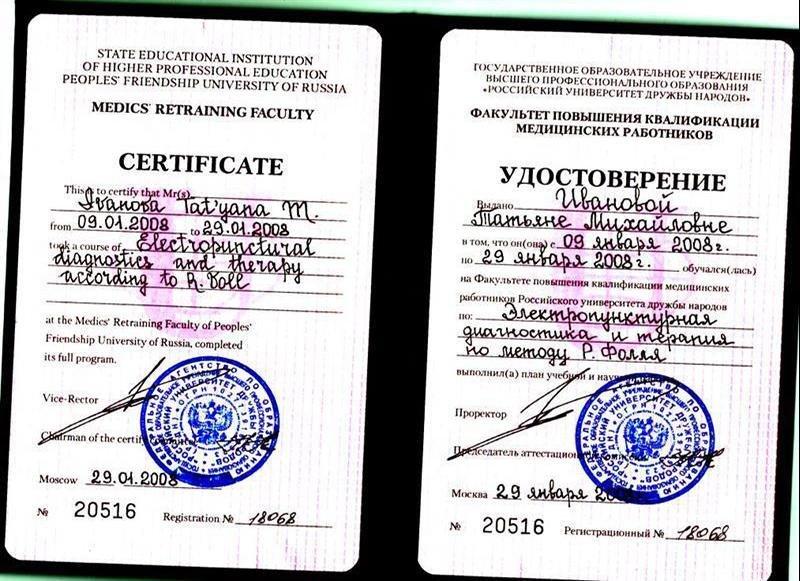 STATE EDUCATIONAL INSTITUTION
OF HIGHER PROFESSIONAL EDUCATION
PEOPLES' FRIENDSHIP UNIVERSITY OF RUSSIA
MEDICS' RETRAINING FACULTY
CERTIFICATE
This is to certify that Mr(s)
Ivanova Tat'yana M.
from 09.01.2008 to 29.01.2008
took a course of Electropunctural
diagnostics and therapy
according to R. Voll
at the Medics' Retraining Faculty of Peoples'
Friendship University of Russia, completed
its full program.
Vice-Rector
Chairman of the certif
Moscow 29.01.2008
№ 20516 Registration № 18068
ГОСУДАРСТВЕННОЕ ОБРАЗОВАТЕЛЬНОЕ УЧРЕЖДЕНИЕ
ВЫСШЕГО ПРОФЕССИОНАЛЬНОГО ОБРАЗОВАНИЯ
«РОССИЙСКИЙ УНИВЕРСИТЕТ ДРУЖБЫ НАРОДОВ»
ФАКУЛЬТЕТ ПОВЫШЕНИЯ КВАЛИФИКАЦИИ
МЕДИЦИНСКИХ РАБОТНИКОВ
УДОСТОВЕРЕНИЕ
Выдано Ивановой
Татьяне Михайловне
в том, что он(она) с 09 января 2008 г.
по 29 января 2008 г. обучался(лась)
на Факультете повышения квалификации медицинских
работников Российского университета дружбы народов
по: Электропунктурная
диагностика и терапия
по методу Р. Фолля
выполнил(а) план учебной и
Проректор
Председатель аттестационной комиссии
Москва 29 января 2008
№ 20516 Регистрационный № 18068